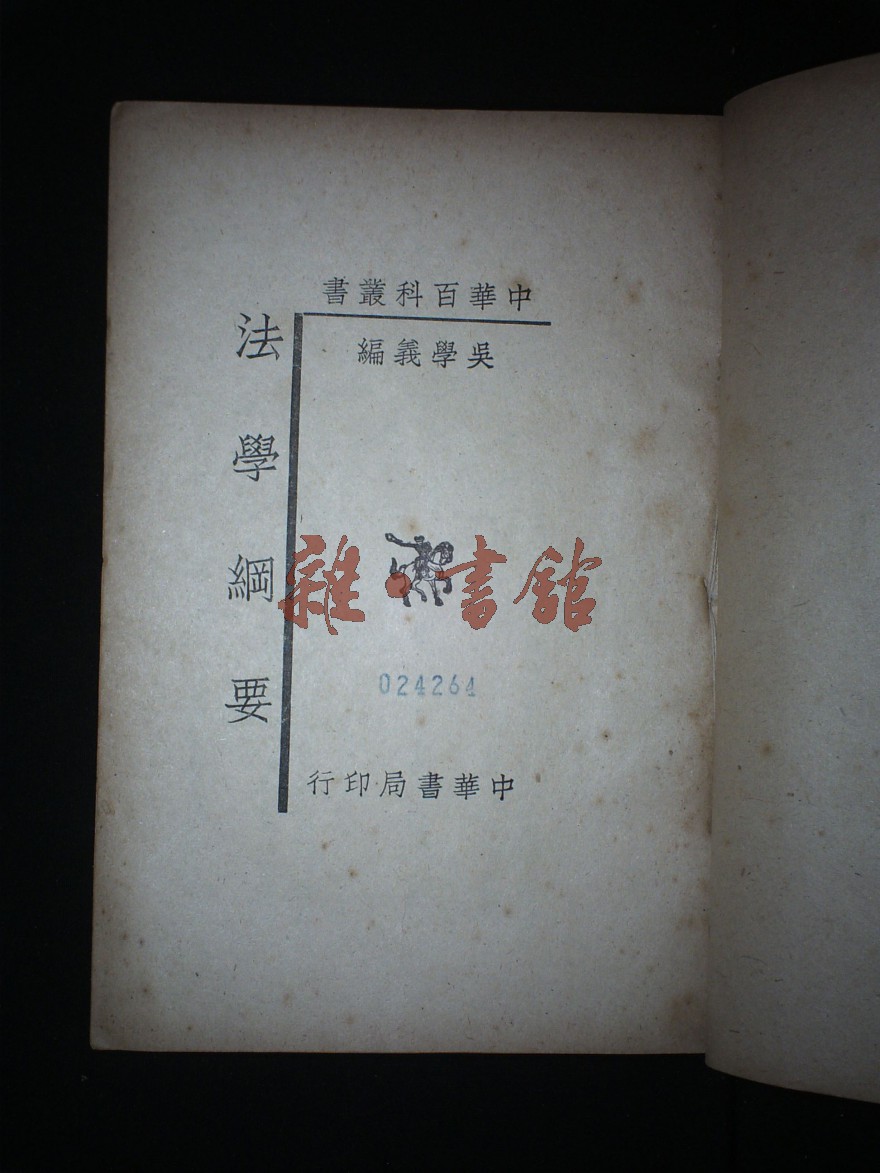 中華百科叢書
吳學義編
法學綱要
雜·書館
024264
中華書局印行